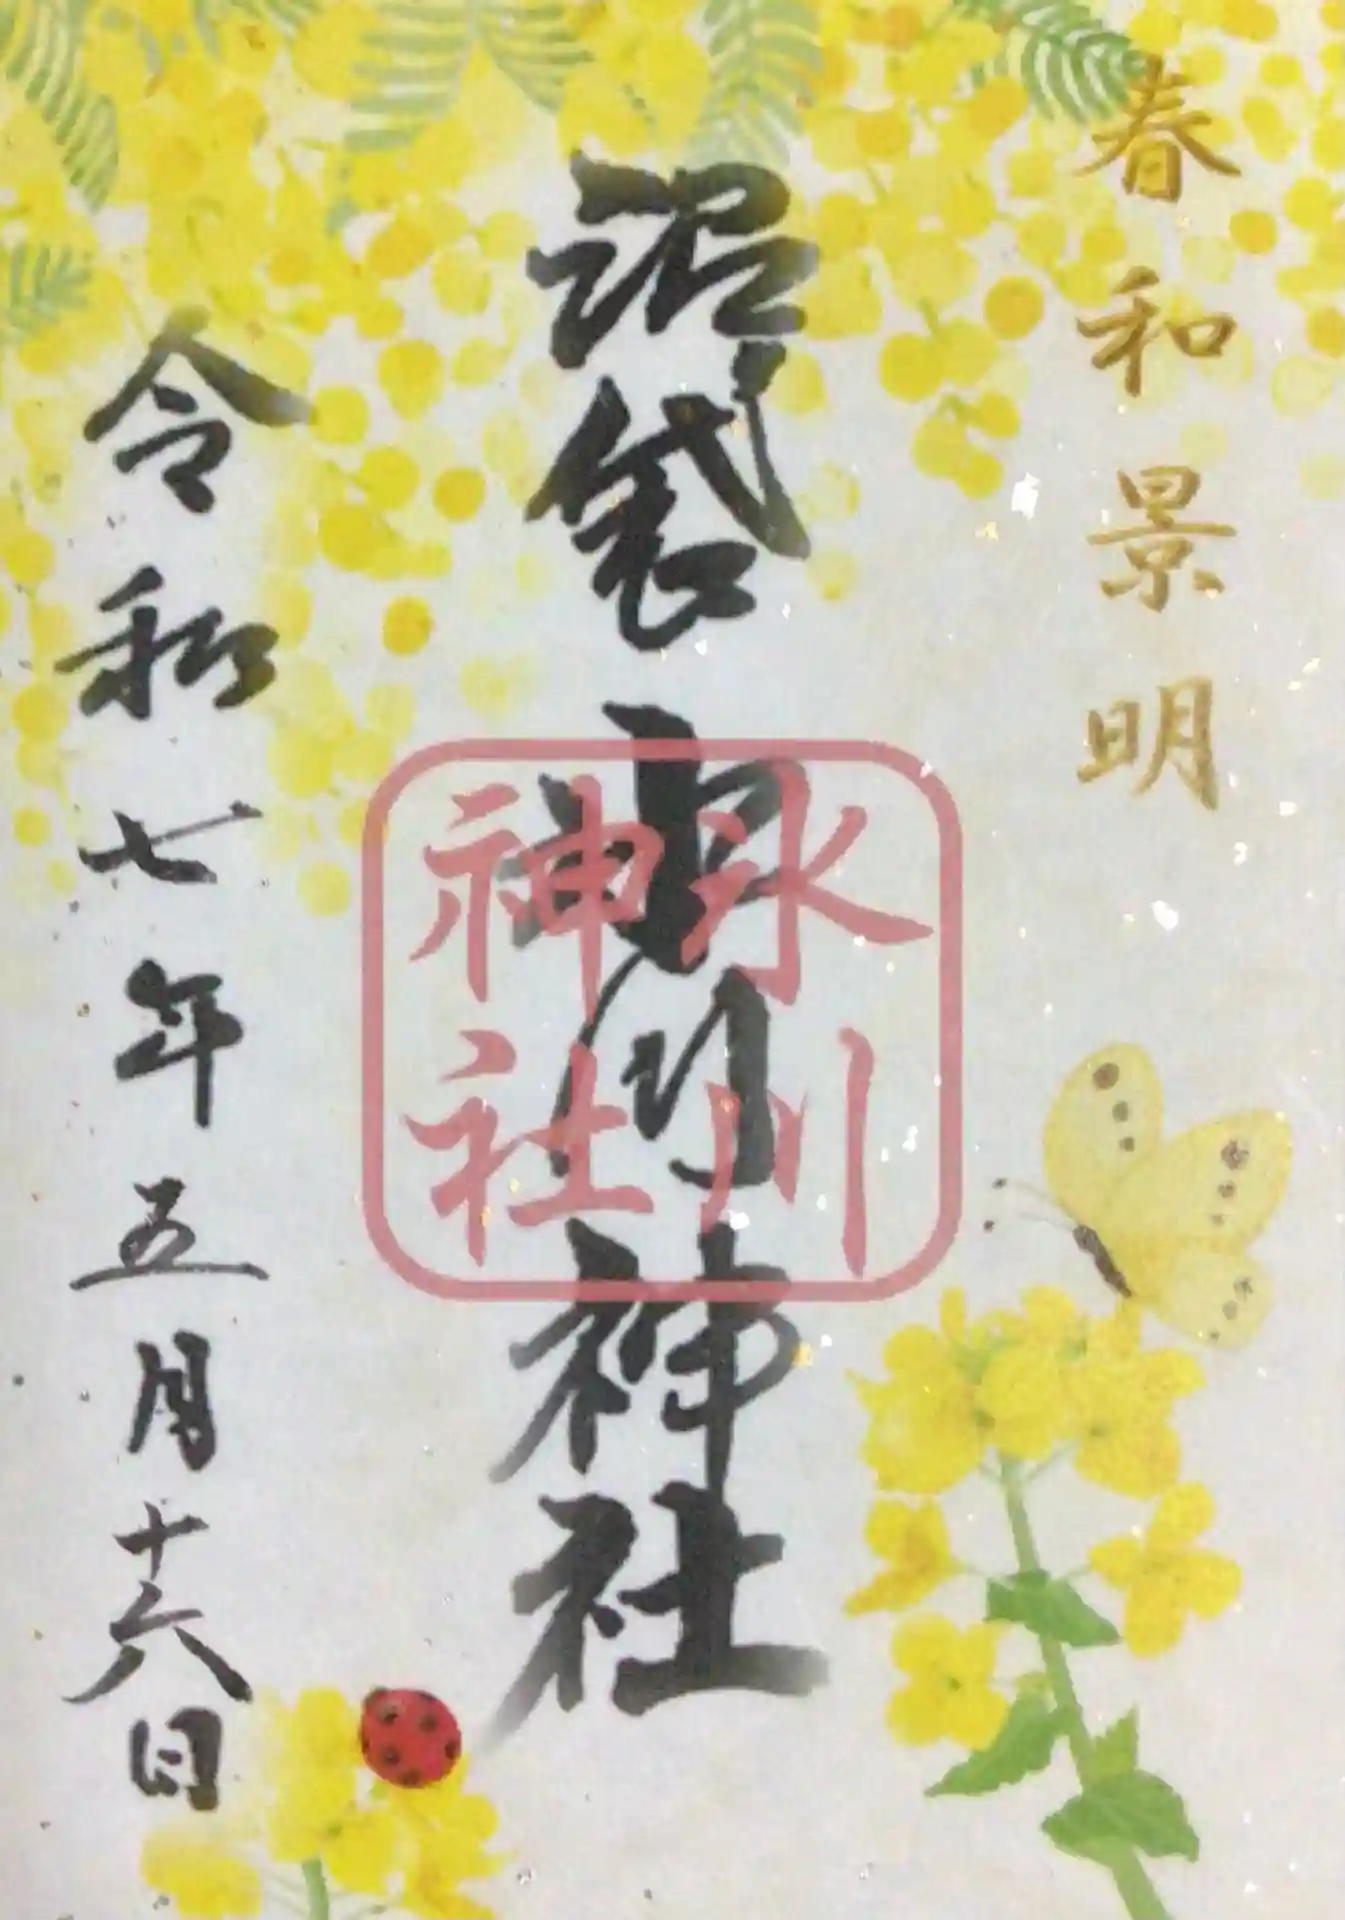 春和景明
沼袋氷川神社
氷川
神社
令和七年五月十六日